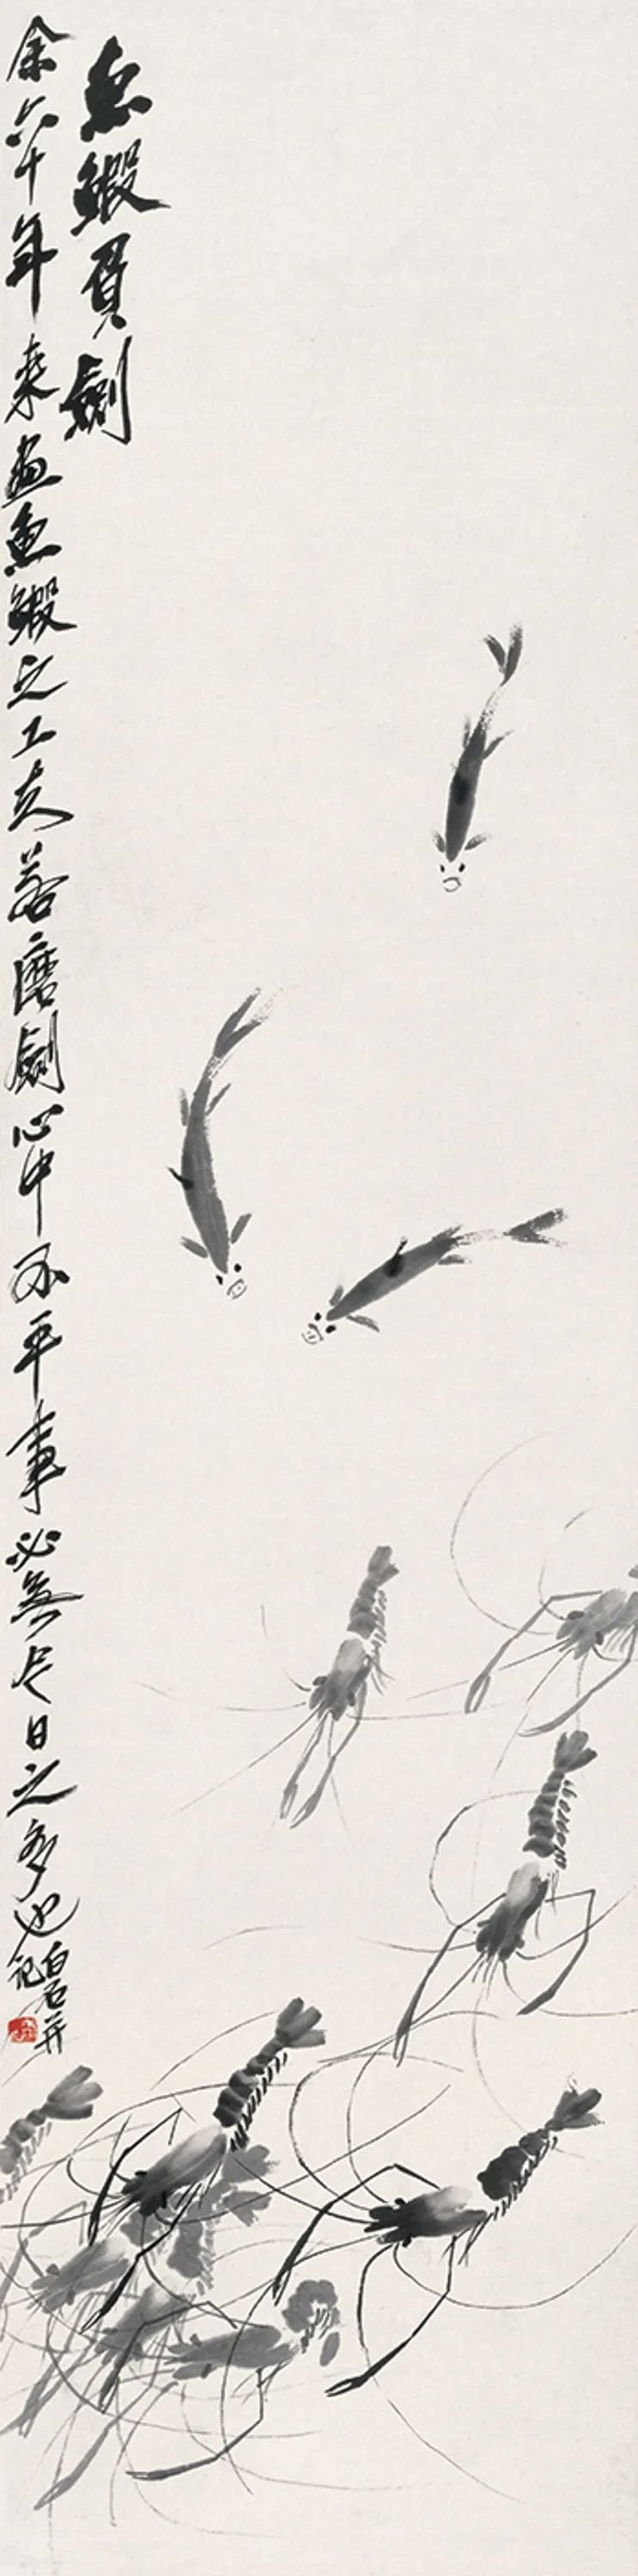 魚鰕劍
余六十年來畫魚鰕之工夫若磨劍心中不平事必無今日之多也
白石并
記